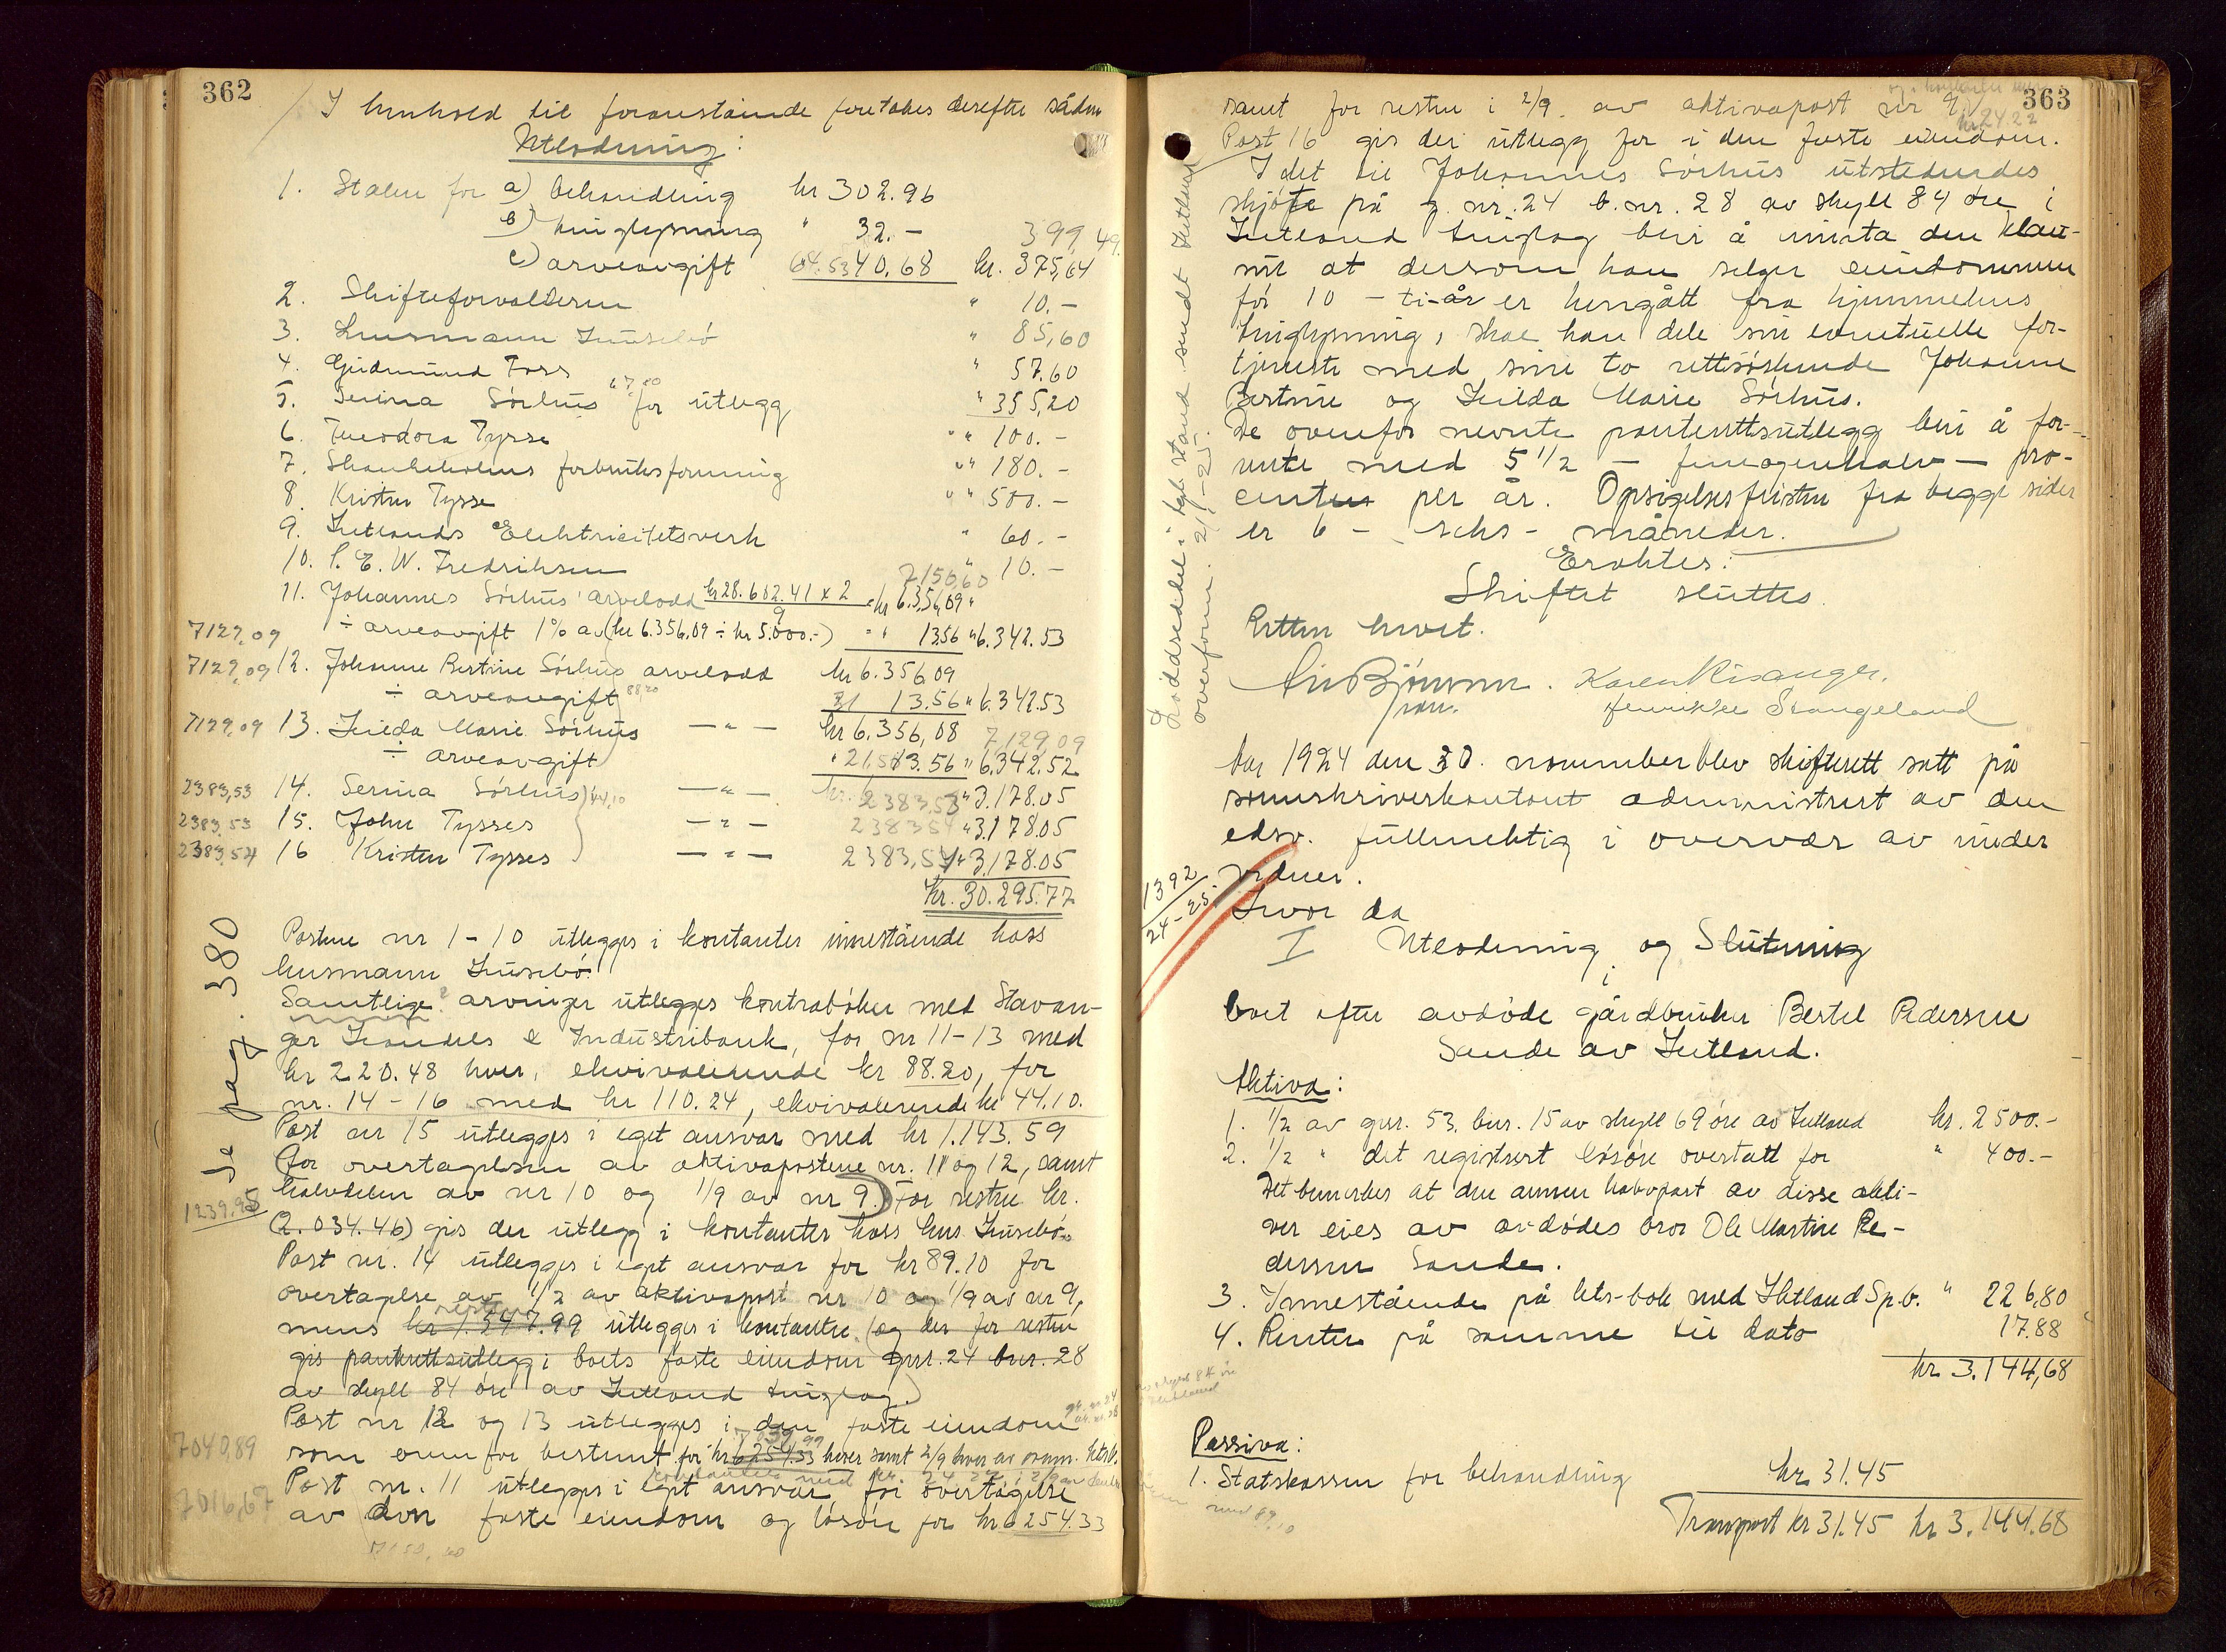 362
I henhold til foranstående foretokes derefter sådan
Utlodning:
1. Staten for a) behandling kr 302.96
b) tinglysning " 32.- 399,49
c) arveavgift 64.53 40,68 kr. 375,64
2. Skifteforvalteren " 10.-
3. Lensmann Husebö " 85,60
4. Gudmund Foss " 57.60
67.20
5. Serina Sörhus for utlegg " 355,20
6. Theodora Tysse " 100.-
7. forbruksforening " 180.-
8. Kristen Tysse " 500.-
9. Hetlands Elektricitetsverk " 60.-
10. P. E. W. Fredriksen " 10.-
7156,60
11. Johannes Sörhus' arvelodd kr 28.602.41 x 2 / 9 = kr 6.356,09
7129,09 ÷ arveavgift 1% av (kr 6.356,09 ÷ kr 5.000.-) " 13.56 " 6.342.53
7129,09 12. Johanne Bertine Sörhus arvelodd kr 6.356 09
÷ arveavgift 88.20 21 13.56 " 6.342.53
7129,09 13. Hilda Marie Sörhus — " — kr 6.356,08 7129,09
÷ arveavgift " 21,5 13.56 " 6.342,52
2383,53 14. Serina Sörhus 44,10 — " — 2383,53 " 3.178.05
2383,53 15. John Tysses — " — 2383 54 " 3.178.05
2383,54 16 Kristen Tysses — " — 2383,54 " 3.178.05
kr. 30.295.77
Se pag. 380
Postene nr 1-10 utlegges i kontanter innestående hoss
lensmann Husebö.
Samtlige arvinger utlegges kontrabøker med Stavan-
ger Handels & Industribank, for nr 11-13 med
kr 220.48 hver, ekvivalerende kr 88.20, for
nr. 14-16 med kr 110.24, ekvivalerende kr 44.10.
Post nr 15 utlegges i eget ansvar med kr 1.143.59
(for overtagelsen av aktivapostene nr. 11 og 12, samt
halvdelen av nr 10 og 1/9 av nr 9.) For resten kr.
1239.95
(2.034.46) gis der utlegg i kontanter hoss lens. Husebö.
Post nr. 14 utlegges i eget ansvar for kr 89.10 for
overtagelse av 1/2 av aktivapost nr 10 og 1/9 av nr 9,
resten
mens kr 1.547.99 utlegges i kontanter. (og der for resten
gis panterettsutlegg i boets faste eiendom gnr. 24 bnr. 28
av skyll 84 öre av Hetland tinglag.)
Post nr 12 og 13 utlegges i den faste eiendom
7040,89 som ovenfor bestemt for kr 6254.33 hver samt 2/9 hver av
Post nr. 11 utlegges i eget ansvar for overtagelse
7016,67 av den faste eiendom og lösöre for kr 6 254.33
363
kr 24 22
samt for resten i 2/9 av aktivapost nr 9.
Post 16 gis der utlegg for i den faste eiendom.
I det til Johannes Sörhus utstedendes
skjöte på g. nr. 24 b. nr. 28 av skyll 84 öre i
Hetland tinglag blir å innta den klau-
sul at dersom han selger eiendommen
för 10 - ti-år er hengått fra hjemmelens
tinglysning, skal han dele sin eventuelle for-
tjeneste med sine to rettsöskende Johanne
Bertine og Hilda Marie Sörhus.
De ovenfor nevnte panterettsutlegg blir å for-
rente med 5 1/2 - femogenhalv - pro-
centen per år. Opsigelsesfristen fra begge sider
er 6 - seks - måneder.
Eraktes:
Skiftet sluttes.
Retten hevet.
Karen Risanger.
Henrikke Stangeland
Loddseddel i bekr. stand sendt Hetland
overform. 2/1-25.
År 1924 den 30. november blev skifterett satt på
sorenskriverkontoret administrert av den
edsv. fullmektig i overvær av under
vidner.
1392
24-25.
Hvor da
I Utlodning og Slutning
i
boet efter avdöde gårdbruker Bertel Pedersen
Sande av Hetland.
Aktiva:
1. 1/2 av gnr. 53, bnr. 15 av skyll 69 öre av Hetland kr. 2500.-
2. 1/2 " det registrert lösöre overtatt for " 400.-
Det bemerkes at den annen halvpart av disse akti-
ver eies av avdödes bror Ole Martin Pe-
dersen Sande.
3. Innestående på ktr-bok med Hetland Sp.b. " 226,80
4. Renter på samme til dato 17.88
kr. 3.144,68
Passiva:
1. Statskassen for behandling kr 31.45
Transport kr 31.45 kr 3.144.68